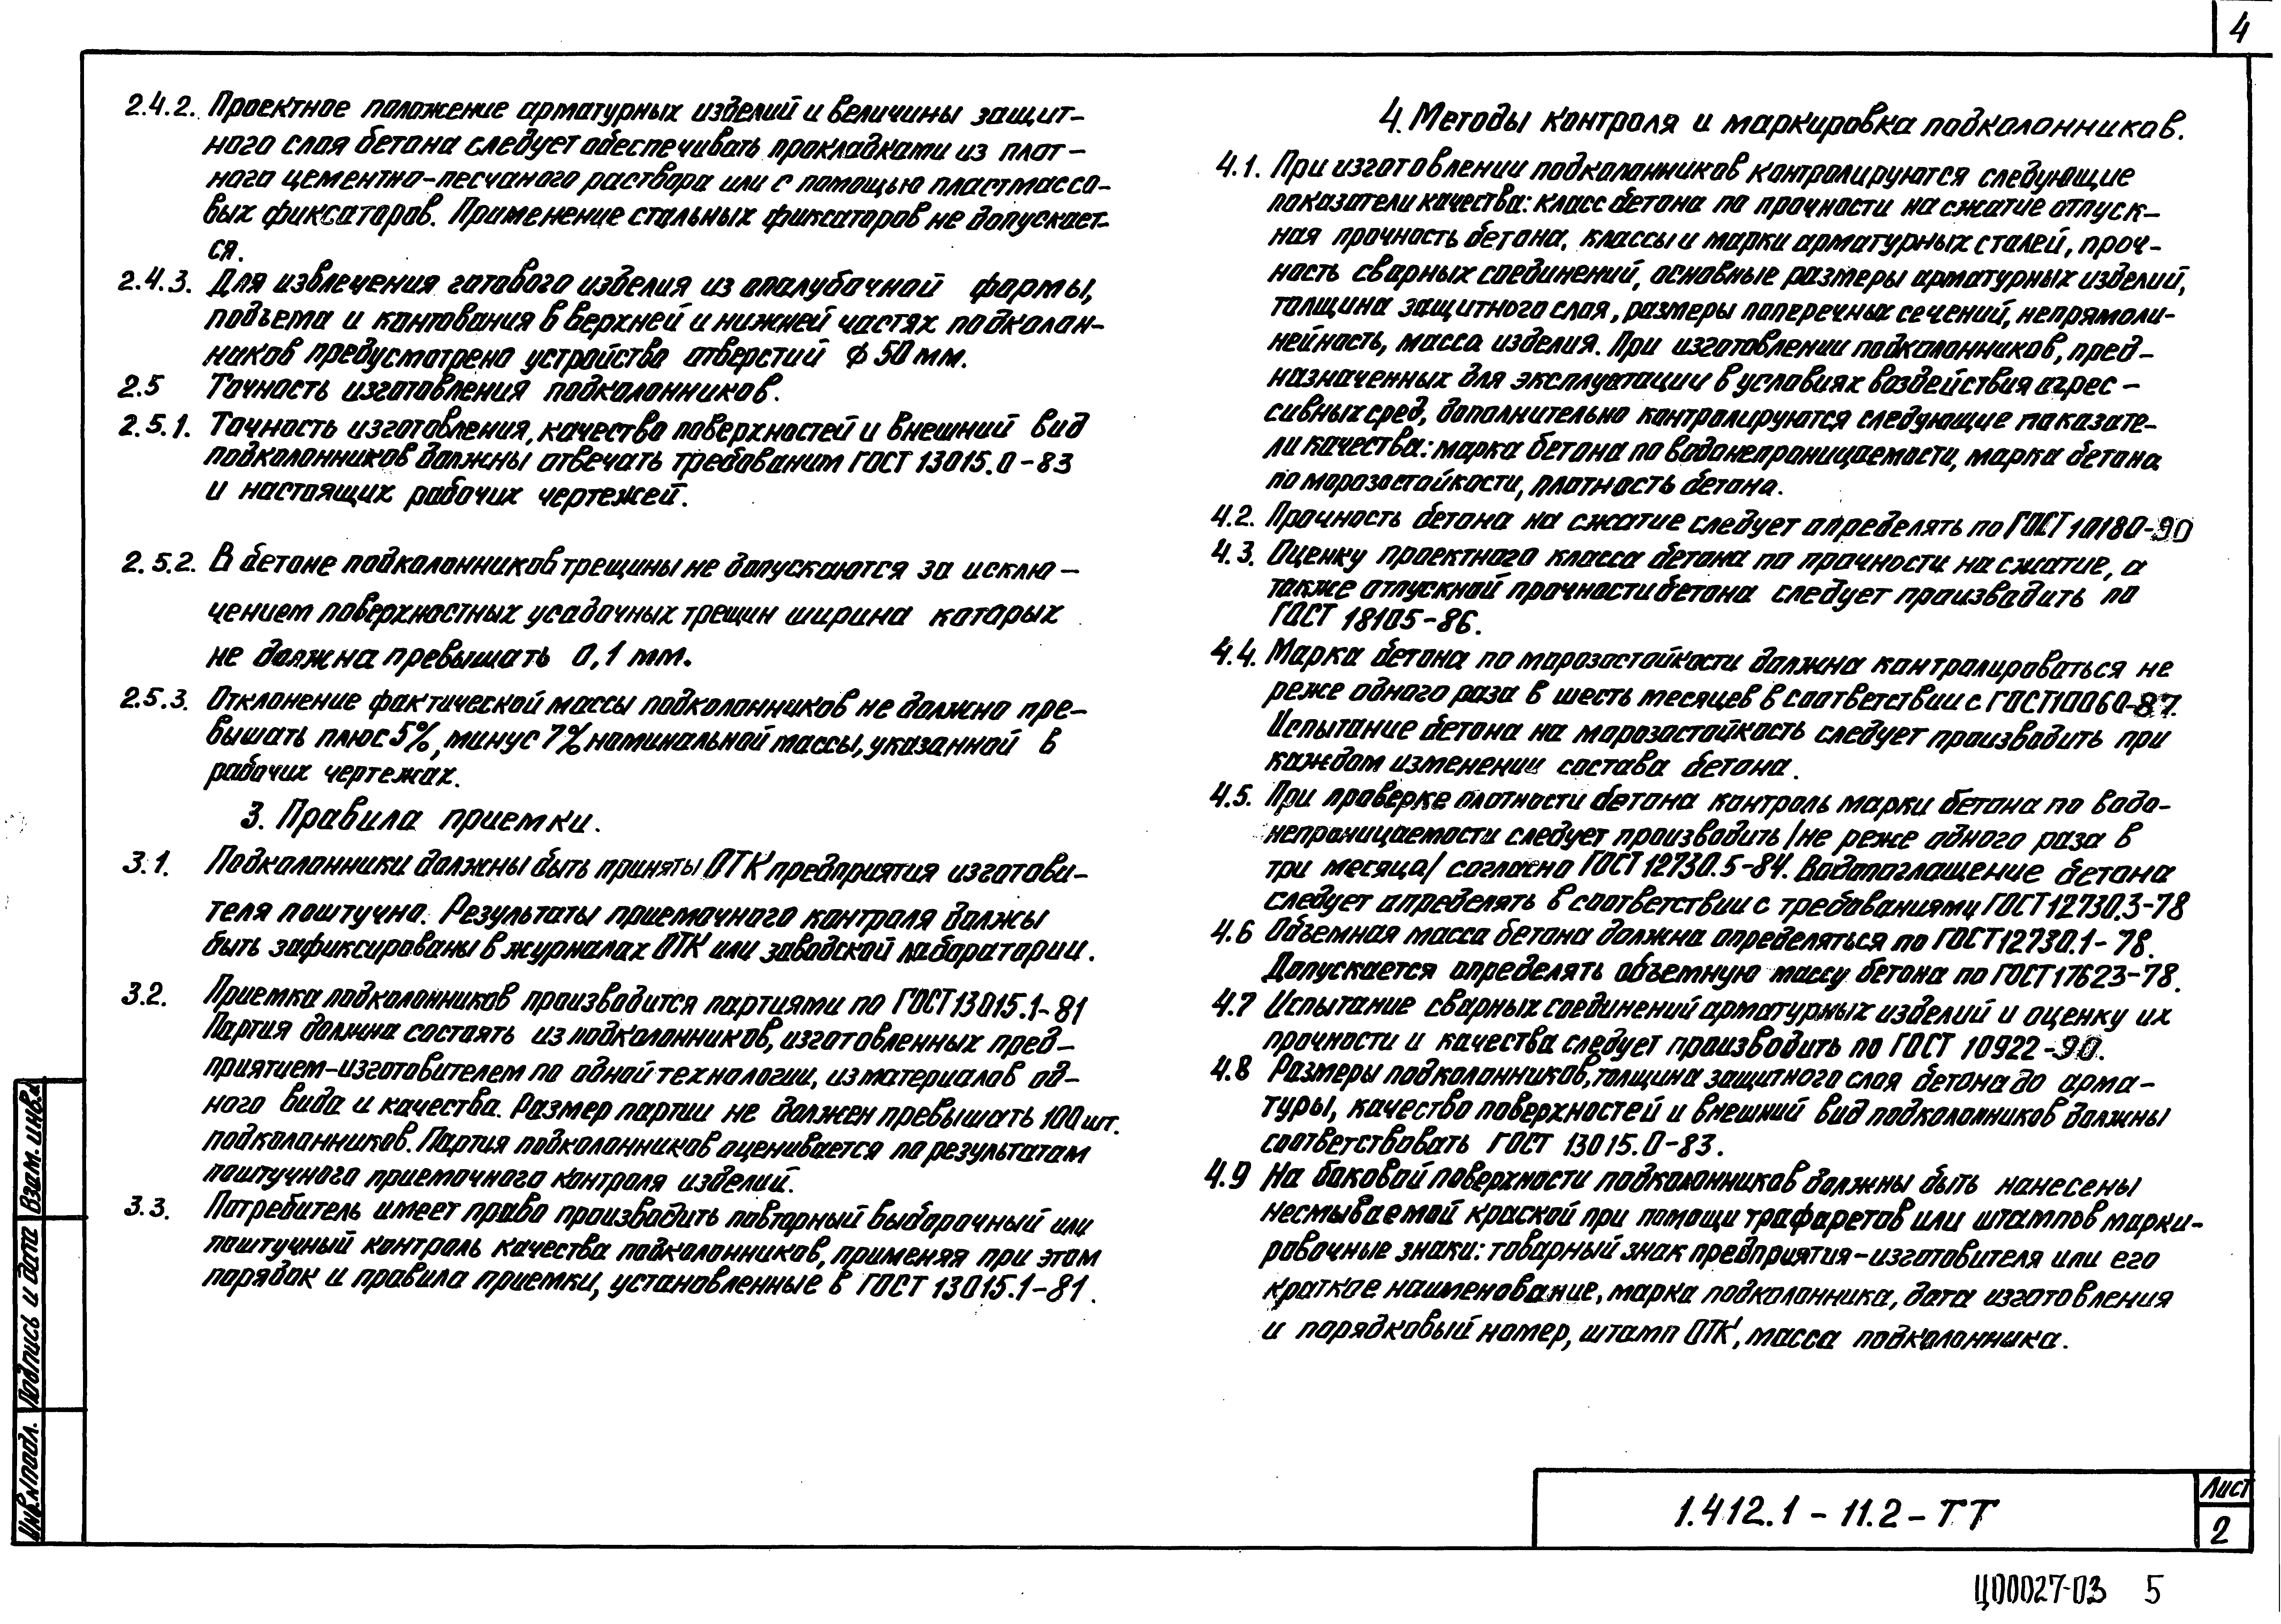 4
2.4.2. Проектное положение арматурных изделий и величины защит-
ного слоя бетона следует обеспечивать прокладками из плот-
ного цементно-песчаного раствора или с помощью пластмассо-
вых фиксаторов. Применение стальных фиксаторов не допускает-
ся.
2.4.3. Для извлечения готового изделия из опалубочной формы,
подъема и кантования в верхней и нижней частях подколон-
ников предусмотрено устройство отверстий ф 50 мм.
2.5 Точность изготовления подколонников.
2.5.1. Точность изготовления, качество поверхностей и внешний вид
подколонников должны отвечать требованим ГОСТ 13015.0-83
и настоящих рабочих чертежей.
2.5.2. В бетоне подколонников трещины не допускаются за исклю-
чением поверхностных усадочных трещин ширина которых
не должна превышать 0,1 мм.
2.5.3. Отклонение фактической массы подколонников не должно пре-
вышать плюс 5%, минус 7% номинальной массы, указанной в
рабочих чертежах.
3. Правила приемки.
3.1. Подколонники должны быть приняты ОТК предприятия изготови-
теля поштучно. Результаты приемочного контроля должы
быть зафиксированы в журналах ОТК или заводской лаборатории.
3.2. Приемка подколонников производится партиями по ГОСТ 13015.1-81
Партия должна состоять из подколонников, изготовленных пред-
приятием-изготовителем по одной технологии, из материалов од-
ного вида и качества. Размер партии не должен превышать 100 шт.
подколонников. Партия подколонников оценивается по результатам
поштучного приемочного контроля изделий.
3.3. Потребитель имеет право производить повторный выборочный или
поштучный контроль качества подколонников, применяя при этом
порядок и правила приемки, установленные в ГОСТ 13015.1-81.
4. Методы контроля и маркировка подколонников.
4.1. При изготовлении подколонников контролируются следующие
показатели качества: класс бетона по прочности на сжатие отпуск-
ная прочность бетона, классы и марки арматурных сталей, проч-
ность сварных соединений, основные размеры арматурных изделий,
толщина защитного слоя, размеры поперечных сечений, непрямоли-
нейность, масса изделия. При изготовлении подколонников, пред-
назначенных для эксплуатации в условиях воздействия агрес-
сивных сред, дополнительно контролируются следующие показате-
ли качества: марка бетона по водонепроницаемости, марка бетона
по морозостойкости, плотность бетона.
4.2. Прочность бетона на сжатие следует определять по ГОСТ 10180-90
4.3. Оценку проектного класса бетона по прочности на сжатие, а
также отпускной прочности бетона следует производить по
ГОСТ 18105-86.
4.4. Марка бетона по морозостойкости должна контролироваться не
реже одного раза в шесть месяцев в соответствии с ГОСТ 10060-87.
Испытание бетона на морозостойкость следует производить при
каждом изменении состава бетона.
4.5. При проверке плотности бетона контроль марки бетона по водо-
непроницаемости следует производить /не реже одного раза в
три месяца/ согласно ГОСТ 12730.5-84. Водопоглащение бетона
следует определять в соответствии с требованиями ГОСТ 12730.3-78
4.6 Объемная масса бетона должна определяться по ГОСТ 12730.1-78.
Допускается определять объемную массу бетона по ГОСТ 17623-78.
4.7 Испытание сварных соединений арматурных изделий и оценку их
прочности и качества следует производить по ГОСТ 10922-90.
4.8 Размеры подколонников, толщина защитного слоя бетона до арма-
туры, качество поверхностей и внешний вид подколонников должны
соответствовать ГОСТ 13015.0-83.
4.9 На боковой поверхности подколонников должны быть нанесены
несмываемой краской при помощи трафаретов или штампов марки-
ровочные знаки: товарный знак предприятия-изготовителя или его
краткое наименование, марка подколонника, дата изготовления
и порядковый номер, штамп ОТК, масса подколонника.
Инв.№подл. Подпись и дата Взам.инв.№
1.412.1-11.2-ТТ
Лист
2
Ц00027-03 5